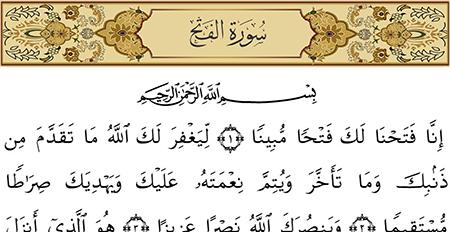 سُورَةُ الفَتْحِ
بِسْمِ اللَّهِ الرَّحْمَٰنِ الرَّحِيمِ
إِنَّا فَتَحْنَا لَكَ فَتْحًا مُّبِينًا ﴿١﴾ لِّيَغْفِرَ لَكَ اللَّهُ مَا تَقَدَّمَ مِن
ذَنۢبِكَ وَمَا تَأَخَّرَ وَيُتِمَّ نِعْمَتَهُۥ عَلَيْكَ وَيَهْدِيَكَ صِرَٰطًا
مُّسْتَقِيمًا ﴿٢﴾ وَيَنصُرَكَ اللَّهُ نَصْرًا عَزِيزًا ﴿٣﴾ هُوَ الَّذِىٓ أَنزَلَ